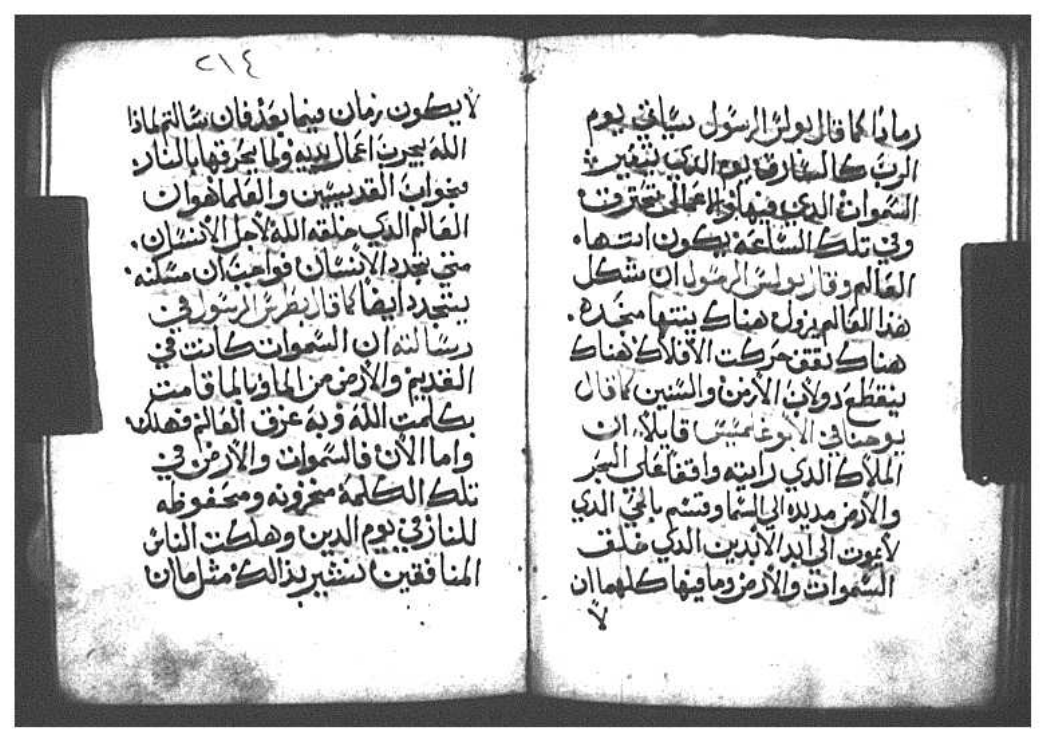 رمادًا كما قال بولس الرسول سياتي يوم
الرب كالسارق يوم الدي تتغير
السموات الدي فيها والاعمال تحترق
وفي تلك الساعة يكون انتها
العالم وقال بولس الرسول ان شكل
هدا العالم يزول هناك ينتها مجده
هناك تقف حركت الافلاك هناك
ينقطع دولاب الازمن والسنين كما قال
يوحنا في الابوغالمسيس قايلا ان
الملاك الدي رايته واقفا على البحر
والارض مديده الي السما وقسم بالحي الدي
لا يموت الي ابد الابدين الدي خلق
السموات والارض وما فيها كلهما ان
لا
٢١٤
لا يكون زمان فيما بعد فان سالتم لماذا
الله يجرب اعمال يديه ولما يحرقها بالنار
فجواب القديسين والعلما هو ان
العالم الدي خلقه الله لاجل الانسان
متي يتجدد الانسان فواجب ان مسكنه
يتجدد ايضا كما قال بطرس الرسول في
رسالته ان السموات كانت في
القديم والارض من الما وبالما قامت
بكلمت الله وبه غرق العالم فهلك
واما الان فالسموات والارض في
تلك الكلمة مخزونه ومحفوظه
للنار في يوم الدين وهلكت الناس
المنافقين نستشير بذالك مثل ما ان